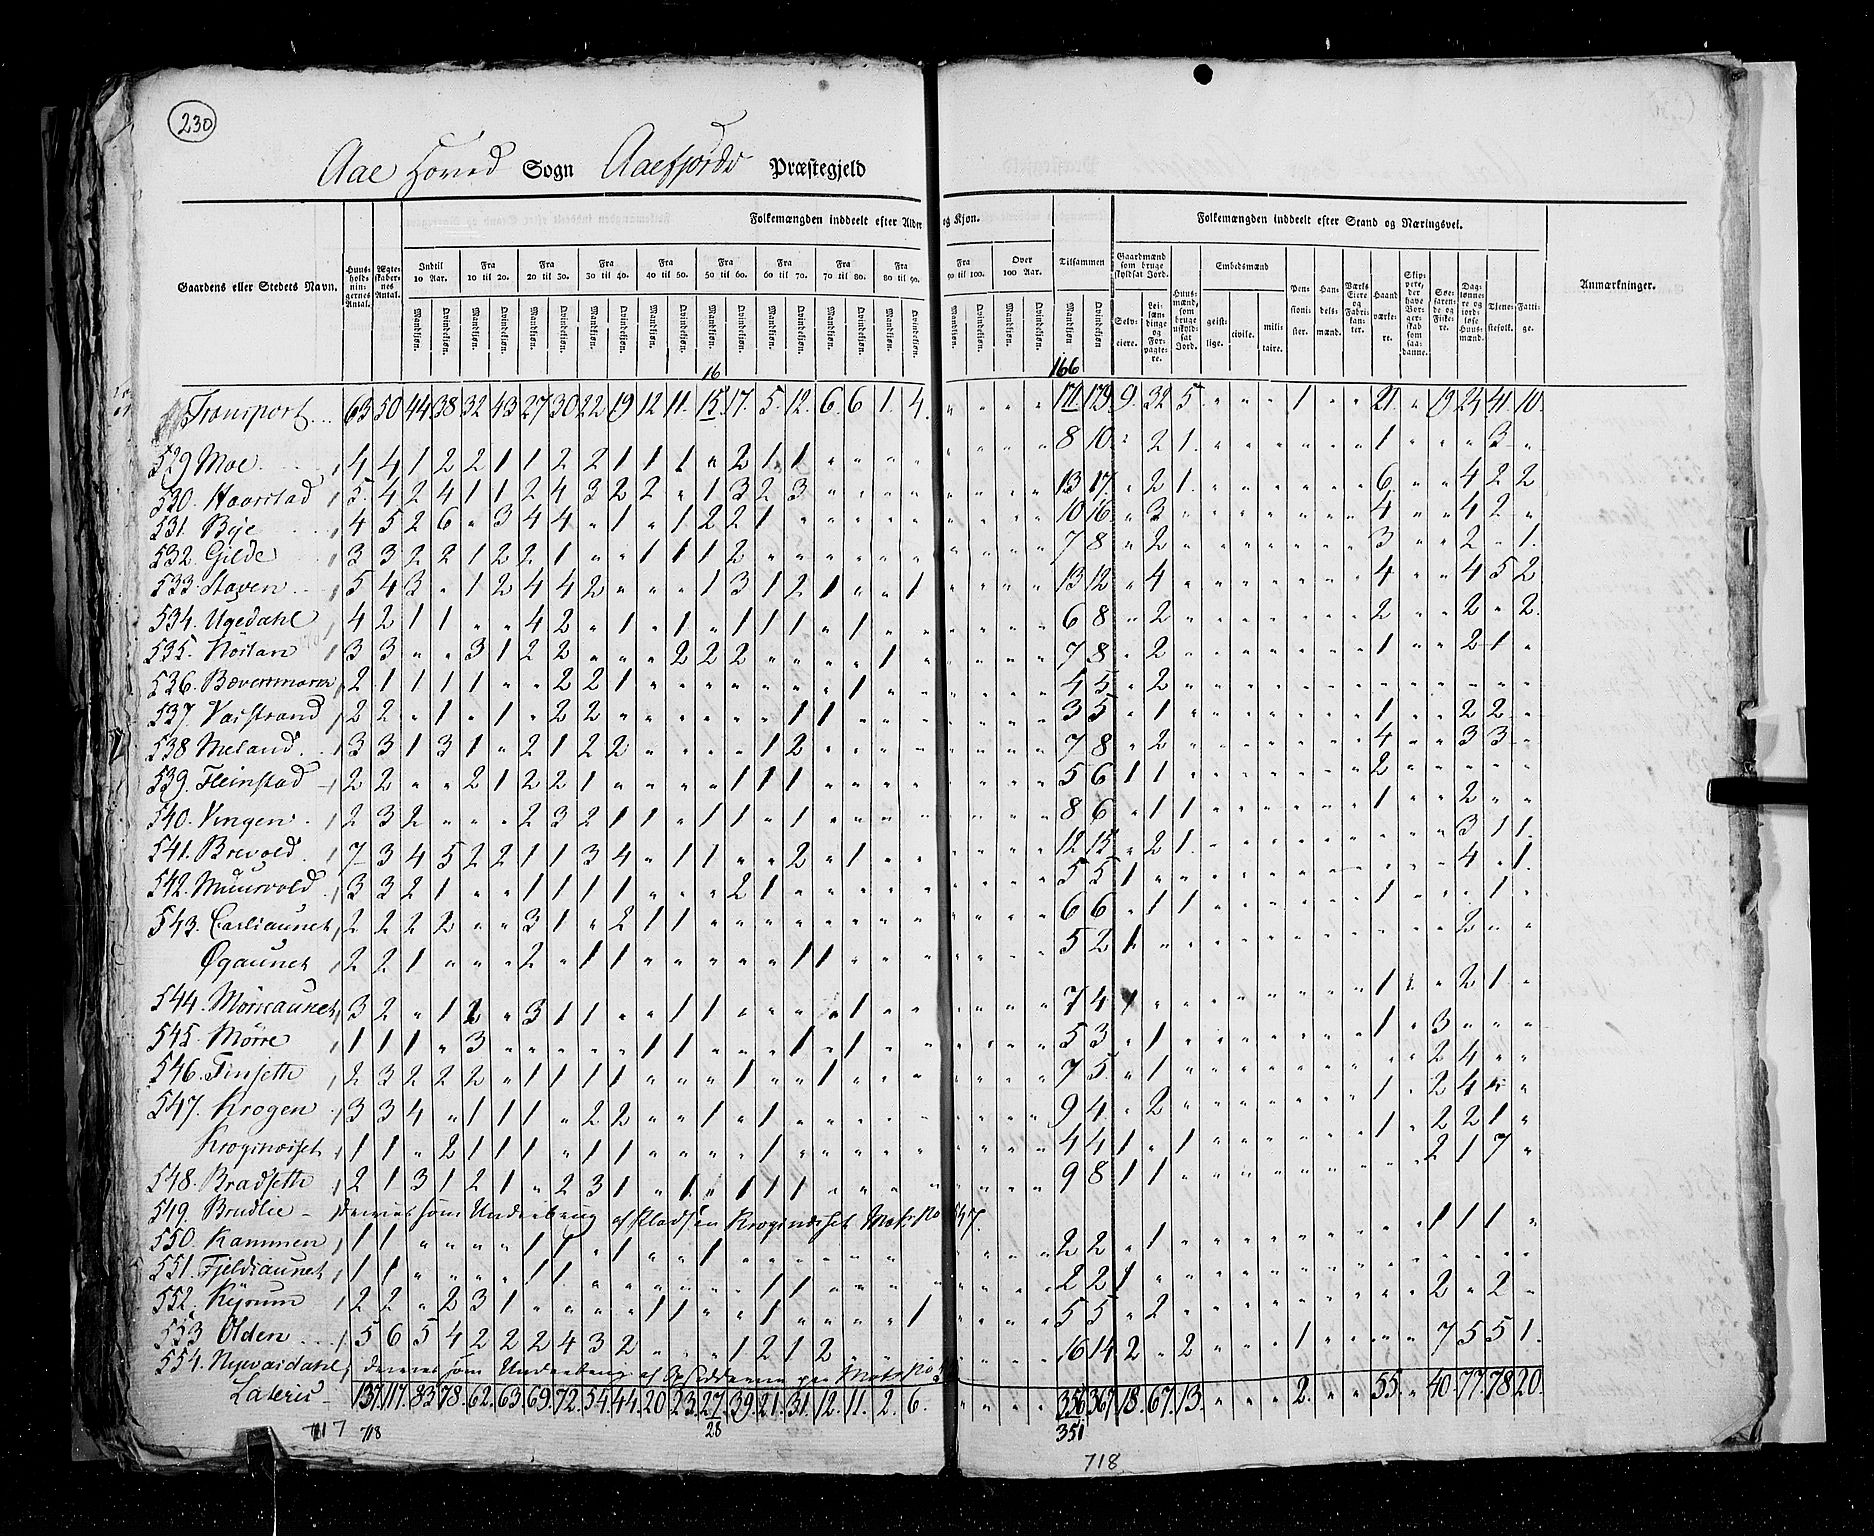 230
Aae Hoved Sogn Aaefjords Præstegjeld
Gaardens eller Stedets Navn.
Huus-holdnin-gernes Antal.
Ægte-skaber-nes Antal.
Folkemængden inddeelt efter Alder og Kjøn.
Indtil 10 Aar. Fra 10 til 20. Fra 20 til 30. Fra 30 til 40. Fra 40 til 50. Fra 50 til 60. Fra 60 til 70. Fra 70 til 80. Fra 80 til 90. Fra 90 til 100. Over 100 Aar. Tilsammen
Mandkjøn. Qvindekjøn.
Folkemængden inddeelt efter Stand og Næringsvei.
Gaardmænd som bruge skyldsat Jord.
Selv-eiere. Lei-lændinge og For-pagtere.
Huus-mænd, som bruge uskyld-sat Jord.
Embedsmænd
geist-lige. civile. mili-taire.
Pen-sioni-ster.
Han-dels-mænd.
Værks Eiere og Fabri-kan-ter.
Haand-værke-re.
Skip-pere, der have Bor-ger-skab som saa-danne.
Søe-faren-de og Fiske-re.
Dag-lønne-re og jord-løse Huus-mænd.
Tjene-stefolk.
Fatti-ge.
Anmærkninger.
16 166
Transport 63 50 44 38 32 43 27 30 22 19 12 11 15 17 5 12 6 6 1 4 " " " " 170 179 9 32 5 " " " 1 " " 21 " 19 24 41 10
529 Moe 4 4 1 2 2 1 1 2 2 1 1 1 " 2 1 1 " " " " " " " " 8 10 " 2 1 " " " " " " 1 " " " 3 "
530 Haarstad 5 4 2 4 1 1 2 4 3 2 2 " 1 3 2 3 " " " " " " " " 13 17 " 2 1 " " " " " " 6 " " 4 2 2
531 Bye 4 5 2 6 " 3 4 4 " 1 " 1 2 2 1 " " " " " " " " 10 16 " 3 " " " " " " " 4 " " 4 2 "
532 Gilde 3 3 2 2 1 2 2 1 " " 1 1 1 2 " " " " " " " " " " 7 8 " 2 " " " " " " " 3 " " 2 " 1
533 Staven 5 4 3 " 1 2 4 4 2 " " " 1 3 1 2 1 " " 1 " " " " 13 12 " 4 " " " " " " " 4 " " 4 5 2
534 Ugedahl 4 2 1 1 " " 4 2 " 1 " 1 " 1 1 1 " 1 " " " " " " 6 8 " 2 " " " " " " " 2 " " 2 " 2
535 3 3 " " 3 1 2 2 " " " 2 2 2 " " " " 1 " " " " " 7 8 " 2 " " " " " " " 1 " " 2 1 "
536 2 1 1 1 1 " " 2 2 1 " " " " " " " 1 " " " " " " 4 5 " 2 " " " " " " " " " " " " "
537 Vaistrand 2 2 " 1 " 1 " 2 2 " " " " " " 1 1 " " " " " " " 3 5 " 1 " " " " " " " 1 " " 2 2 "
538 Meland 3 3 1 3 1 " 2 1 2 2 " " " " 1 2 " " " " " " " " 7 8 " 2 " " " " " " " 4 " " 3 3 "
539 Fleinstad 2 2 " " 2 1 2 2 1 " " " " 1 1 1 " " " " " " " " 5 6 1 1 " " " " " " " 2 " " " " "
540 Vingen 2 3 2 " " " 2 3 2 1 1 " 1 1 " 1 " " " " " " " " 8 6 " 1 1 " " " " " " 1 " " 2 " "
541 Brevold 7 3 4 5 2 2 1 1 3 4 " 1 1 " " 2 " 1 " " " " " " 12 15 " 2 1 " " " " " " " " " 3 1 1
542 Muurvold 3 3 2 1 " " 1 1 1 1 " " " 2 1 " " " " " " " " " 5 5 1 " " " " " " " " " " " 4 " 1
543 Carliaunet 2 2 2 2 " " 3 1 " 2 1 1 " " " " " " " " " " " " 6 6 " 1 1 " " " " " " 1 " " " 1 "
Øgaunet 2 2 1 " " " 2 " 1 1 " " " " " 1 1 " " " " " " " 5 2 1 " " " " " " " " " " " 2 " "
544 Mörriaunet 3 2 " 1 2 " 3 1 1 " " 1 1 " " " " 1 " " " " " " 7 4 " " " " " " " " 1 " " 2 1 "
545 Mörre 1 1 1 " 3 " " " " " 1 1 " " " 1 " 1 " " " " " " 5 3 " 1 " " " " " " " 1 " 3 " " "
546 Finseth 2 3 2 2 2 " 1 1 1 1 " " " 1 " " 1 " " " " " " " 7 5 " 1 " " " " " " " " " 2 4 " "
547 Krogen 3 3 4 " 1 1 1 " 2 2 " " 1 " 1 " " " " " " " " " 9 4 " 2 " " " " " " " 1 " 2 4 " "
1 1 " 2 1 1 1 " 1 1 " " " " 1 " " " " " " " " " 4 4 1 " 1 " " " " " " 1 " 2 2 1 "
548 Bradseth 2 1 3 1 2 1 " 2 3 1 " 1 " 1 1 1 " " " " " " " " 9 8 1 1 " " " " " " " " " 2 1 7 "
549 Brudlie – som Underbrug af Pladsen Matr No 547.
550 Kammen 1 1 " " " " 1 1 " 1 " " 1 " " " " " " " " " " " 2 2 " 1 " " " " " " " " " 1 1 1 "
551 Fjeldiaunet 1 1 " " " " 1 1 " " " " " " 1 1 " " " " " " " " 2 2 1 " " " " " " " " " " " " " "
552 2 2 " 2 3 1 " " " " 1 1 " " 1 " " " " 1 " " " " 5 5 " 2 " " " " " " " " " 2 " 2 "
553 Olden 5 6 5 4 2 2 2 4 3 2 " " " 1 2 1 2 " " " " " " " 16 14 2 " 2 " " " 1 " " " " 7 5 5 1
554 som Underbrug af
Lateris 137 117 83 78 62 63 69 72 54 44 20 23 27 39 21 31 12 11 2 6 " " " " 356 367 18 67 13 " " " 2 " " 55 " 40 77 78 20
717 718 28 351
718